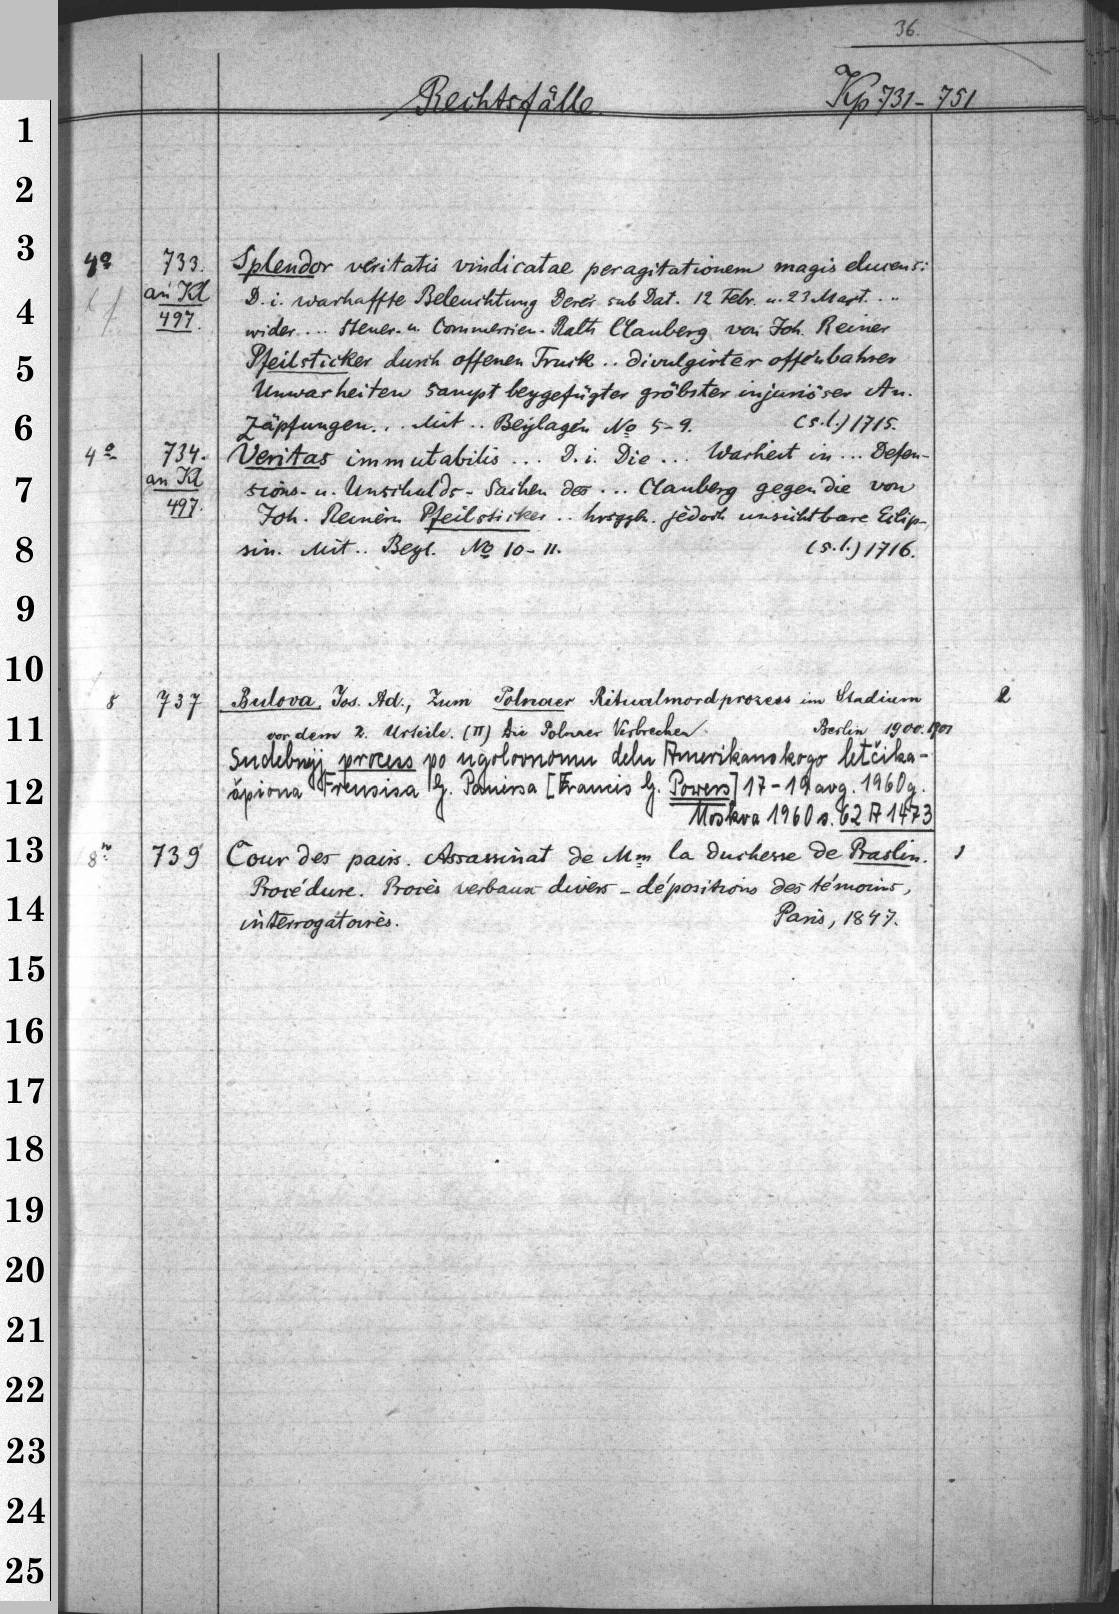 36.
Rechtsfälle. Kp 731-751
1
2
3
4º 733. Splendor veritatis vindicatae per agitationem magis elucens:
4
an Kl D. i. warhaffte Beleuchtung Derer sub Dat. 12 Febr. u. 23 Mart. ..
497. wider.... Steuer- u. Commercien-Rath Clauberg von Joh. Reiner
5
Pfeilsticker durch offenen Truck .. divulgirter offenbahrer
Unwarheiten sampt beygefügter gröbster injuriöser An-
6
zäpfungen... Mit .. Beylagen No 5-9. (s.l.) 1715.
4º 734. Veritas immutabilis ... D. i. Die ... Warheit in ... Defen-
7
an Kl sions- u. Unschulds-Sachen des ... Clauberg gegen die von
497. Joh. Reinern Pfeilsticker .. jedoch unsichtbare Eclip-
8
sin. Mit .. Beyl. No 10-11. (s.l.) 1716.
9
10
8 737 Bulova, Jos. Ad., Zum Polnaer Ritualmordprozess im Stadium 2
11
vor dem 2. Urteile. (II) Die Polnaer Verbrechen. Berlin 1900. 1901
Sudebnyj process po ugolovnomu delu Amerikanskogo letčika-
12
špiona Frensisa G. Pauersa [Francis G. Powers] 17-19 avg. 1960 g.
Moskva 1960 s. 62 A 1473
13
8º 739 Cour des pairs. Assassinat de Mme la duchesse de Praslin. 1
Procédure. Procès verbaux divers - dépositions des témoins,
14
interrogatoires. Paris, 1847.
15
16
17
18
19
20
21
22
23
24
25